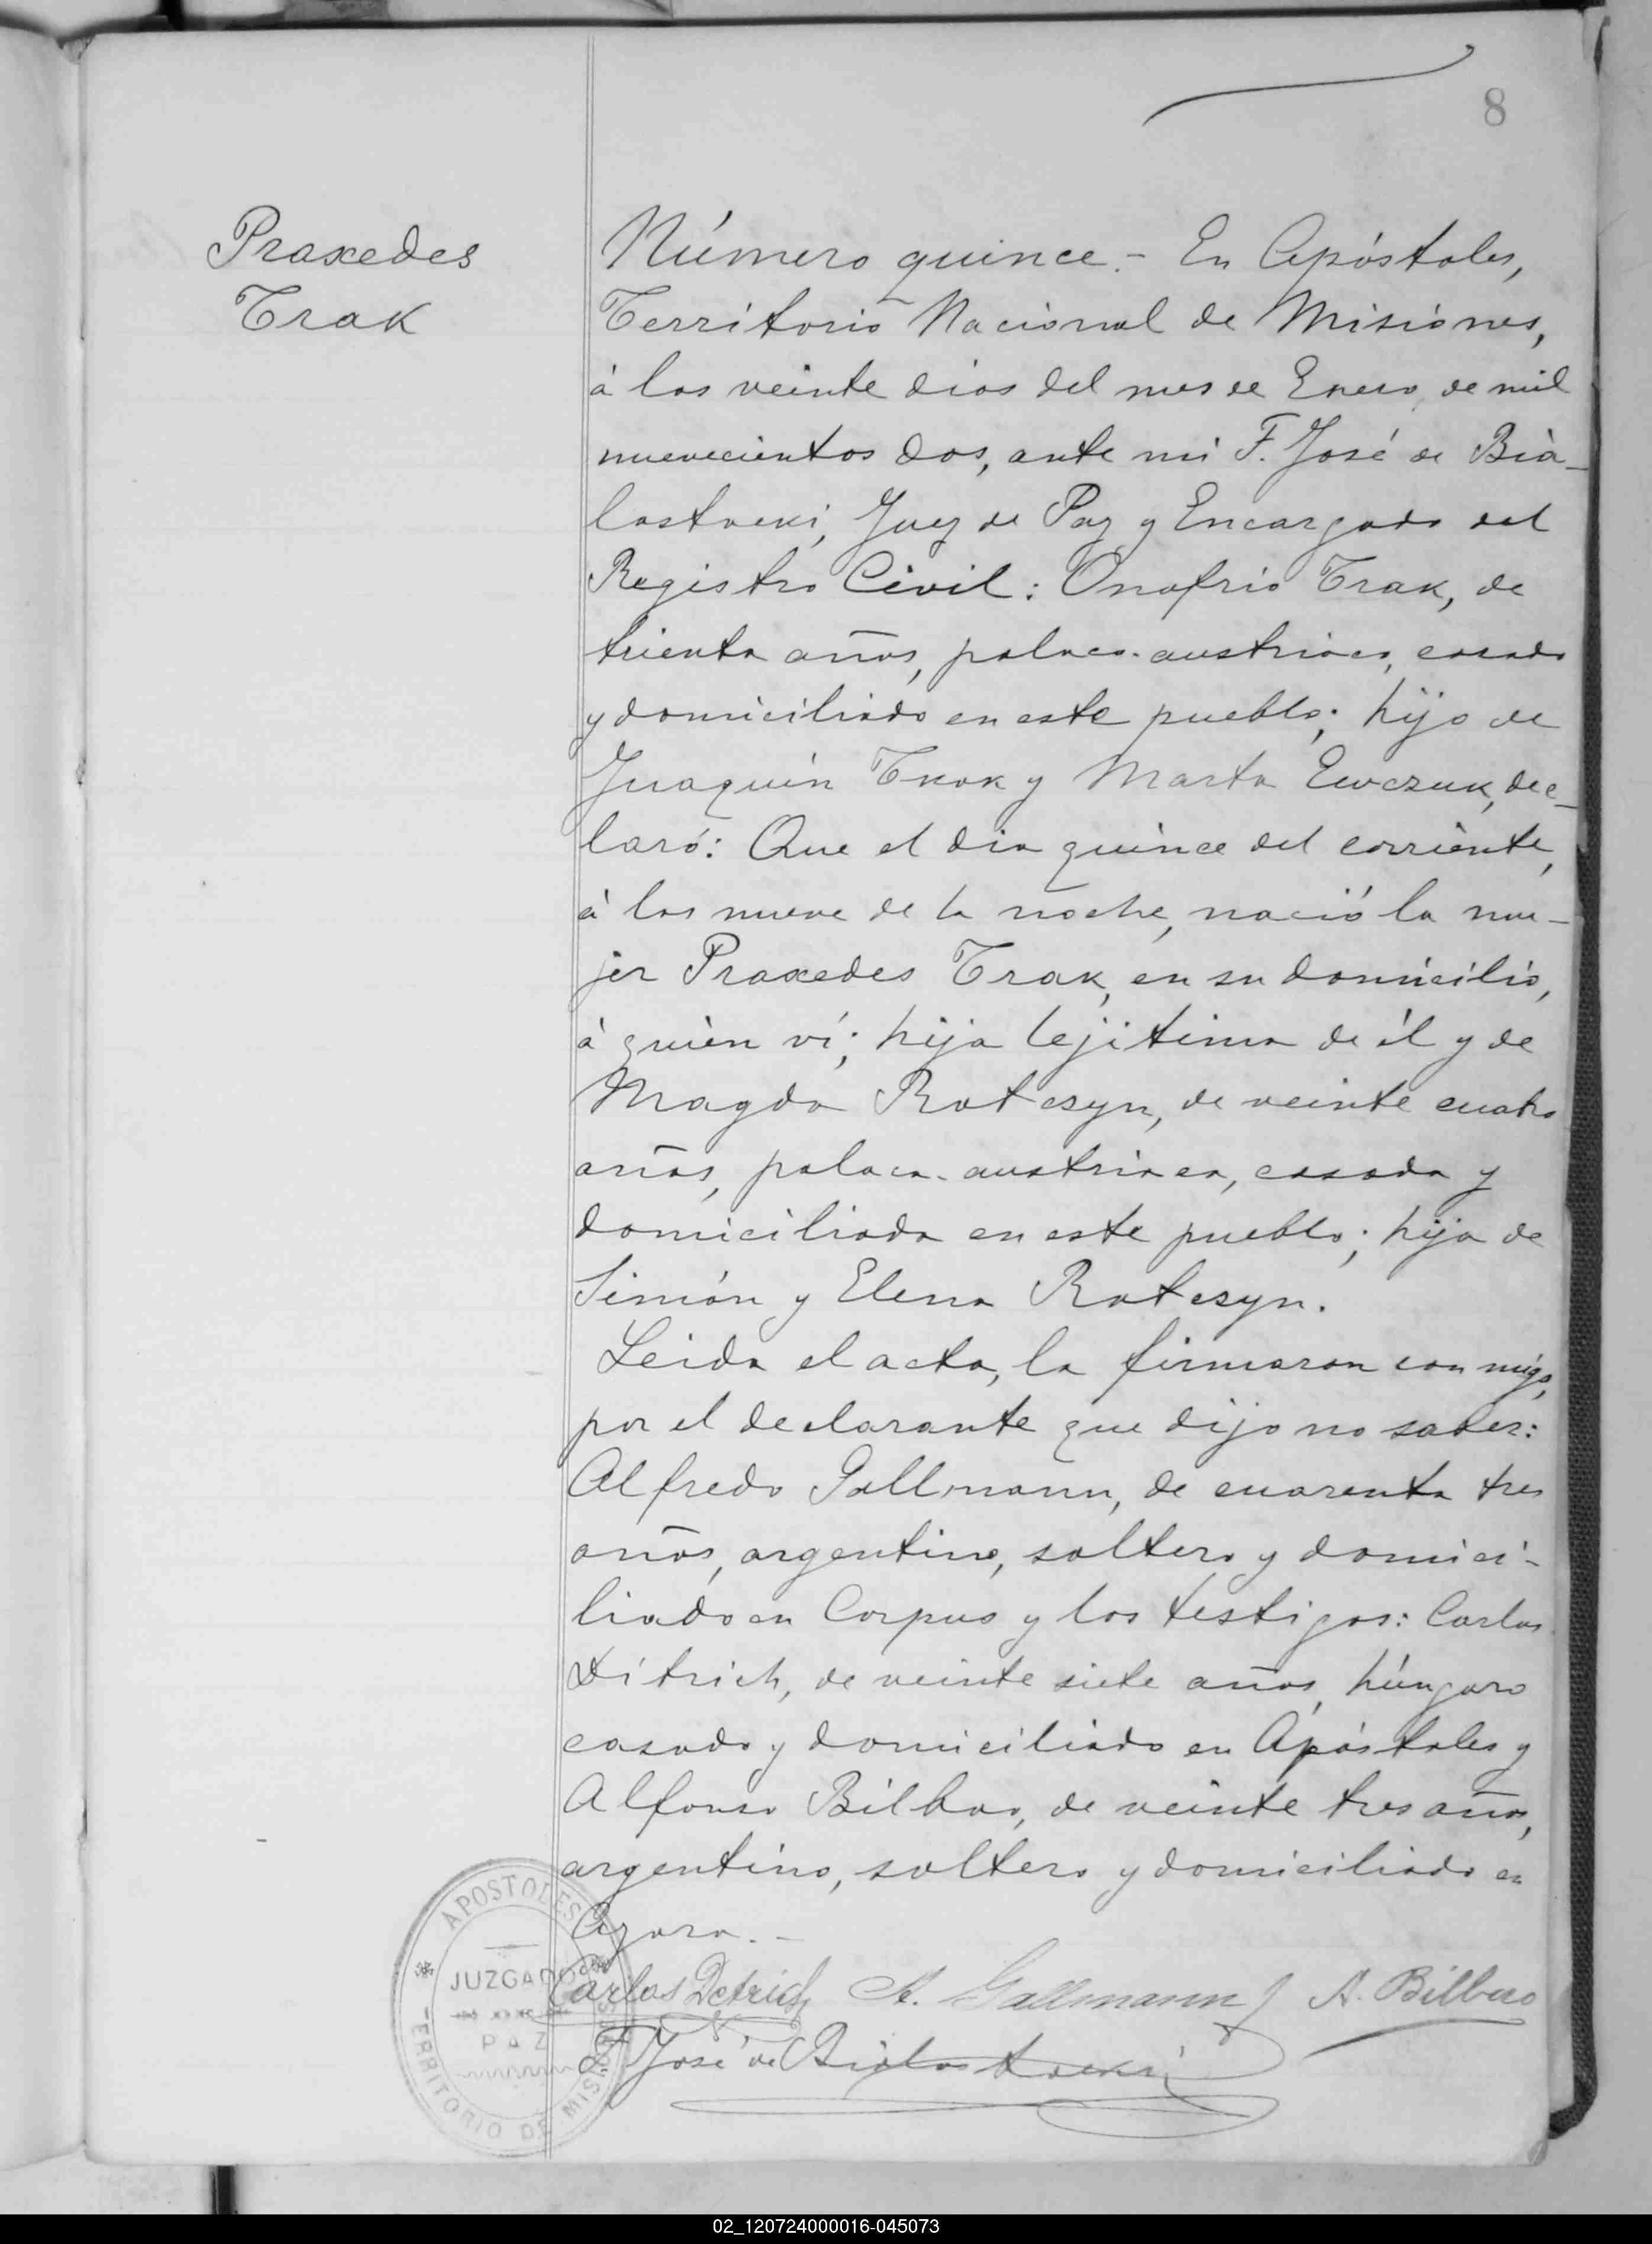 8
Praxedes
Trak
Número quince.- En Apóstoles,
Territorio Nacional de Misiones,
á los veinte dias del mes de Enero de mil
nuevecientos dos, ante mi F. José de Bia-
lostocki, Juez de Paz y Encargado del
Registro Civil: Onofrio Trak, de
trienta años, polaco-austriaco, casado
y domiciliado en este pueblo; hijo de
Juaquin Trak y Marta Ewczuk, dec-
laró: Que el dia quince del corriente,
á las nueve de la noche, nació la mu-
jer Praxedes Trak, en su domicilio,
á quién ví; hija lejitima de él y de
Magda Ratesyn, de veinte cuatro
años, polaca-austriaca, casada y
domiciliada en este pueblo; hija de
Simón y Elena Ratesyn.
Leida el acta, la firmaron con migo,
por el declarante que dijo no saber:
Alfredo Gallmann, de cuarenta tres
años, argentino, soltero y domici-
liado en Corpus y los testigos: Carlos
Ditrich, de veinte siete años, húngaro
casado y domiciliado en Apóstoles y
Alfonso Bilbao, de veinte tres años,
argentino, soltero y domiciliado en
Azara.-
Carlos Detrich A. Gallmann A. Bilbao
F. José de Bialostocki
APOSTOLES
JUZGADO DE
PAZ
TERRITORIO DE MISIONES
02_120724000016-045073